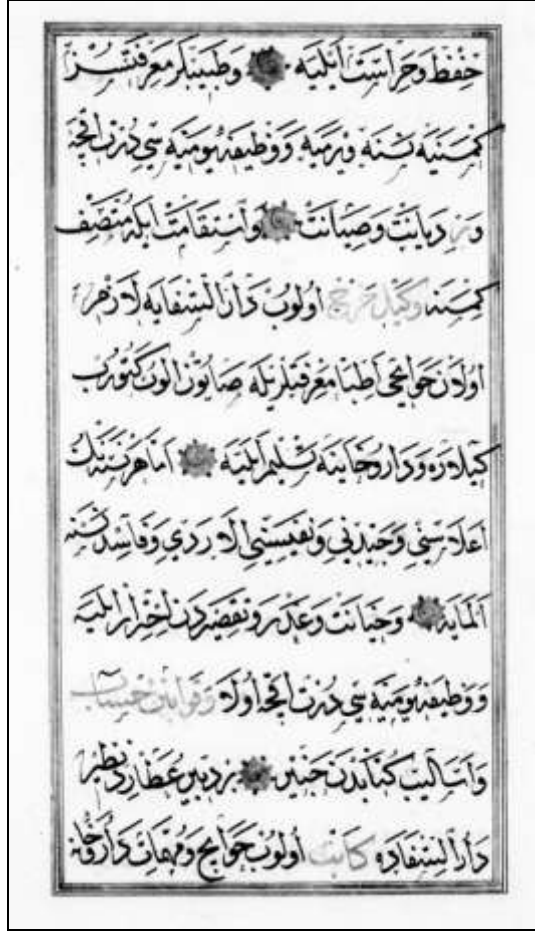 حفظ و حراست ایلیه وطبیبلر معرفتسز
کمسنیه نسنه ویرمیه ووظیفۀ یومیه سی دورت اقچه
وبر دیانت وصیانت واستقامت ایله متصف
کمسنه وکیل خرج اولوب دار الشفایه لازم
اولان حوایجی اطبا معرفتلریله صاتون الوب کتوروب
کیلاره وداروخانیه تسلیم ایلیه اما هر نسنه نك
اعلاسینی وجیدنی ونفیسینی الا ردی وفاسد نسنه
المایه وخیانت وغدر وتقصیردن احتراز ایلیه
ووظیفۀ یومیه سی دورت اقچه اولا وقوانین حساب
واسالیب کتابدن خبیر بر دبیر عطارد نظیر
دار الشفاده کاتب اولوب حوایج ومهمات داروخانه